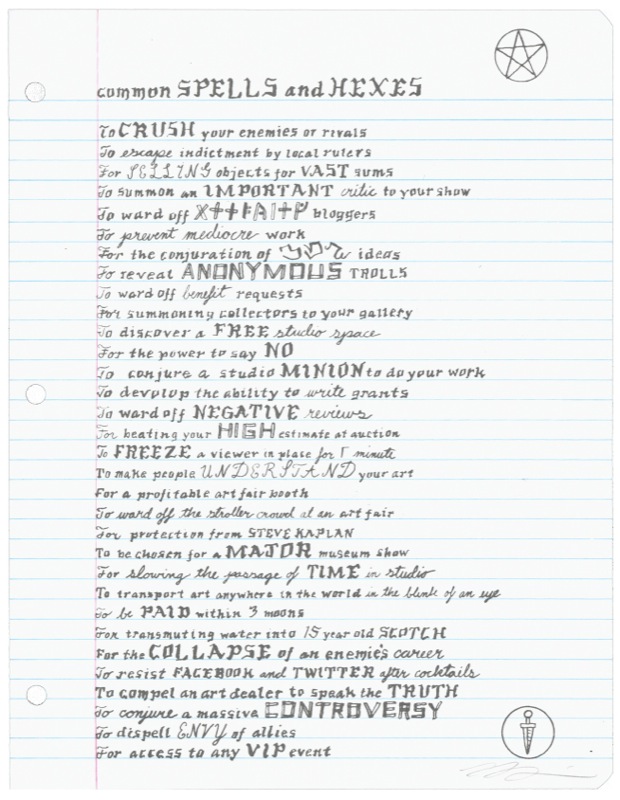 common SPELLS and HEXES
To CRUSH your enemies or rivals
To escape indictment by local rulers
For SELLING objects for VAST sums
To summon an IMPORTANT critic to your show
To ward off bloggers
To prevent mediocre work
For the conjuration of ideas
To reveal ANONYMOUS TROLLS
To ward off benefit requests
For summoning collectors to your gallery
To discover a FREE studio space
For the power to say NO
To conjure a studio MINION to do your work
To develop the ability to write grants
To ward off NEGATIVE reviews
For beating your HIGH estimate at auction
To FREEZE a viewer in place for 1 minute
To make people UNDERSTAND your art
For a profitable art fair booth
To ward off the stroller crowd at an art fair
For protection from STEVE KAPLAN
To be chosen for a MAJOR museum show
For slowing the passage of TIME in studio
To transport art anywhere in the world in the blink of an eye
To be PAID within 3 moons
For transmuting water into 15 year old SCOTCH
For the COLLAPSE of an enemie's career
To resist FACEBOOK and TWITTER after cocktails
To compel an art dealer to speak the TRUTH
To conjure a massive CONTROVERSY
To dispell ENVY of allies
For access to any VIP event